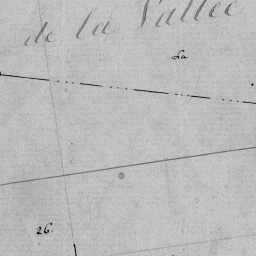 de la Vallée
La
26.